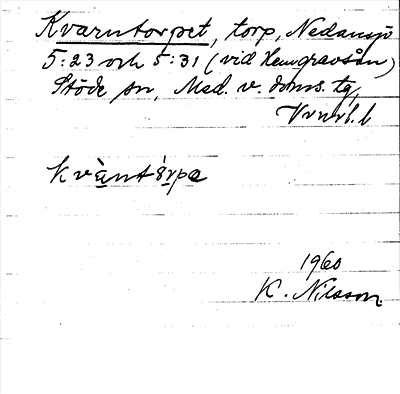 Kvarntorpet, torp, Nedansjö
5:23 och 5:31 (vid Hemgravsån)
Stöde sn, Med. v. doms. tg,
kvàntór̤pa
1960
K. Nilsson.